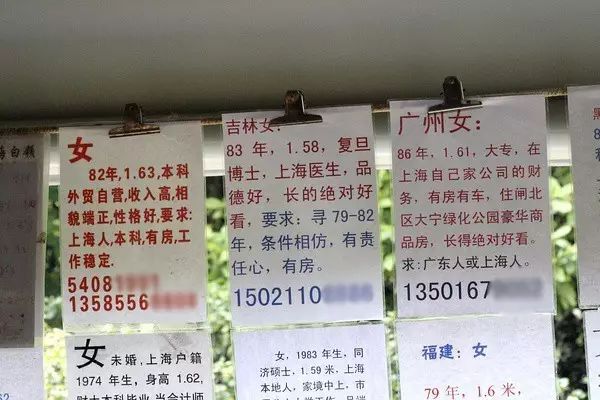 女
82年,1.63,本科
外贸自营,收入高,相
貌端正,性格好,要求:
上海人,本科,有房,工
作稳定.
5408
1358556
吉林女:
83 年，1.58，复旦
博士，上海医生，品
德好，长的绝对好
看，要求：寻 79-82
年，条件相仿，有责
任心，有房。
1502110
广州女：
86 年，1.61，大专，在
上海自己家公司的财
务，有房有车，住闸北
区大宁绿化公园豪华商
品房，长得绝对好看。
求:广东人或上海人。
1350167
女 未婚,上海户籍
1974 年生，身高 1.62,
女，1983 年生，同
济硕士，1.59 米，上海
本地人，家境中上，市
福建：女
79 年，1.6 米，